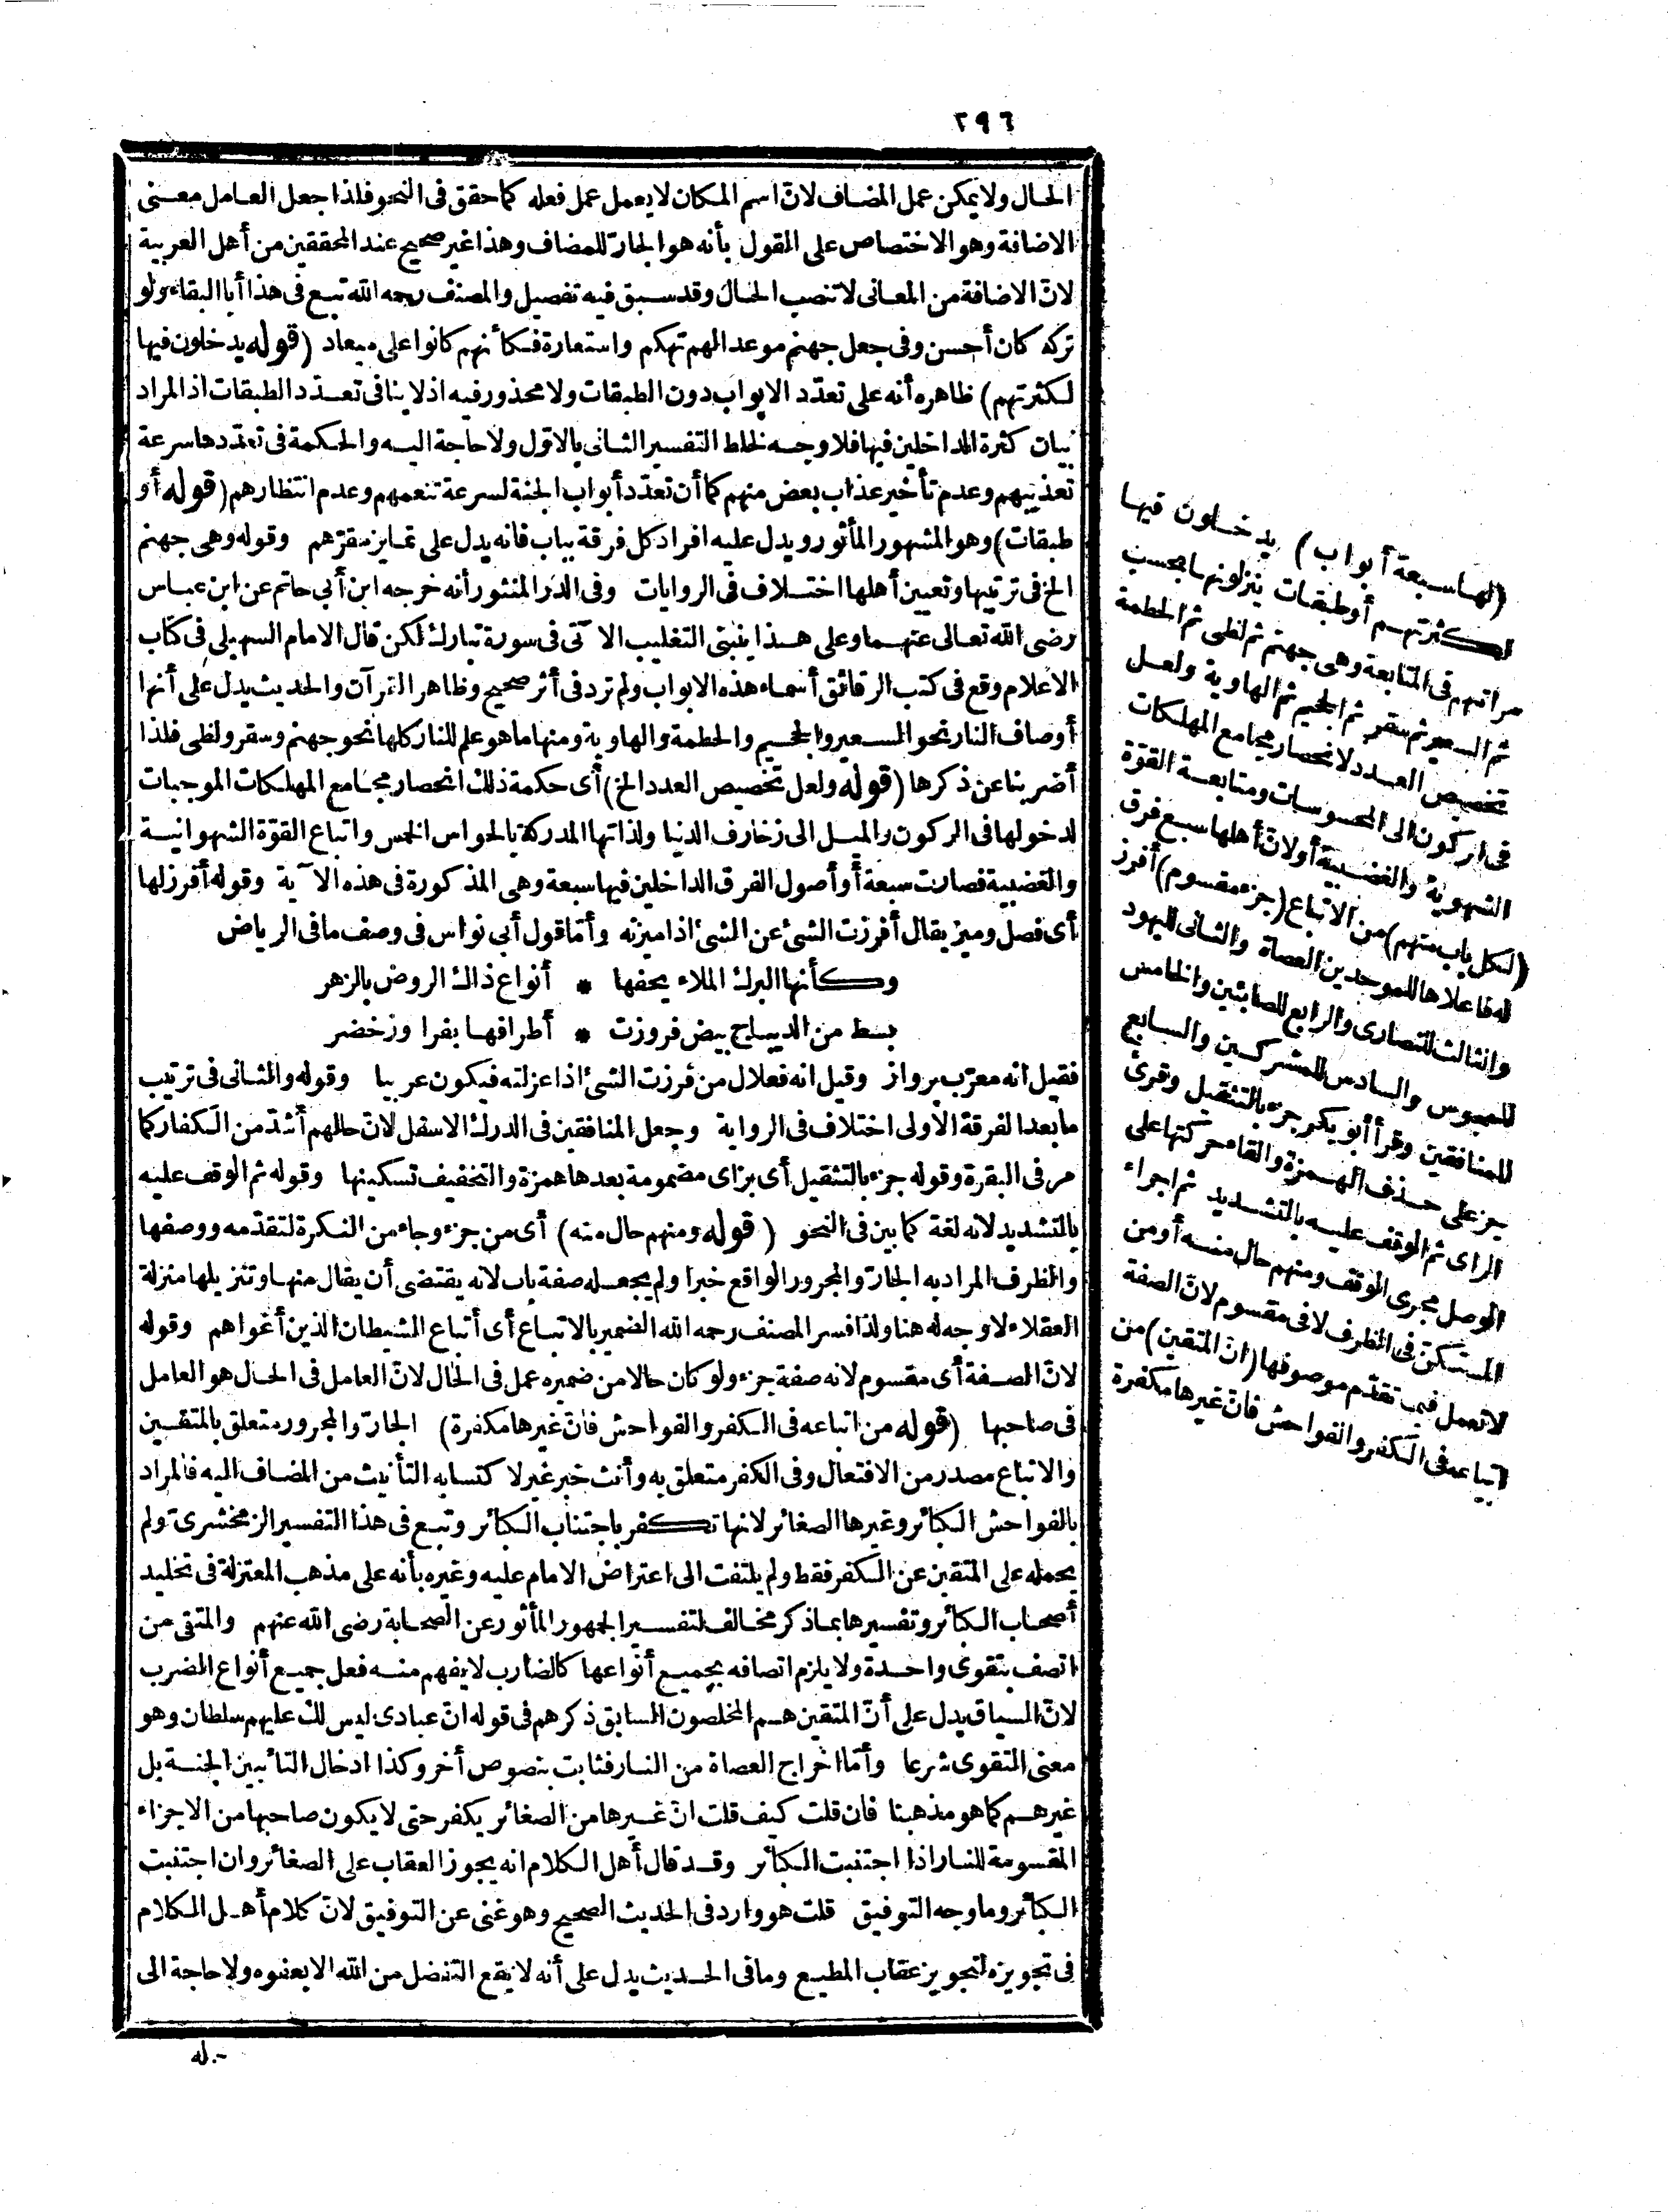 ٢٩٦
الحال ولا يمكن عمل المضاف لانّ اسم المكان لا يعمل عمل فعله كما حقق فى النحو فلذا جعل العامل معنى
الاضافة وهو الاختصاص على القول بأنه هو الجارّ للمضاف وهذا غير صحيح عند المحققين من أهل العربية
لانّ الاضافة من المعانى لا تنصب الحال وقد سبق فيه تفصيل والمصنف رحمه الله تبع فى هذا أبا البقاء ولو
تركه كان أحسن وفى جعل جهنم موعدا لهم تهكم واستعارة فكأنهم كانوا على ميعاد (قوله يدخلون فيها
لكثرتهم) ظاهره أنه على تعدّد الابواب دون الطبقات ولا محذور فيه اذ لا ينافى تعدّد الطبقات اذ المراد
بيان كثرة الداخلين فيها فلا وجه لخلط التفسير الثانى بالاوّل ولا حاجة اليه والحكمة فى تعدّدها سرعة
تعذيبهم وعدم تأخير عذاب بعض منهم كما أن تعدّد أبواب الجنة لسرعة تنعمهم وعدم انتظارهم (قوله أو
طبقات) وهو المشهور المأثور ويدل عليه افراد كل فرقة بباب فانه يدل على تمايز مقرّهم وقوله وهى جهنم
الخ فى ترتيبها وتعيين أهلها اختلاف فى الروايات وفى الدرّ المنثور أنه خرجه ابن أبي حاتم عن ابن عباس
رضى الله تعالى عنهما وعلى هذا يبتنى التغليب الآتى فى سورة تبارك لكن قال الامام السهيلى فى كتاب
الاعلام وقع فى كتب الرقائق أسماء هذه الابواب ولم ترد فى أثر صحيح وظاهر القرآن والحديث يدل على أنها
أوصاف النار نحو السعير والجحيم والحطمة والهاوية ومنها ما هو علم للنار كلها نحو جهنم وسقر ولظى فلذا
أضربنا عن ذكرها (قوله ولعل تخصيص العدد الخ) أى حكمة ذلك انحصار مجامع المهلكات الموجبات
لدخولها فى الركون والميل الى زخارف الدنيا ولذاتها المدركة بالحواس الخمس واتباع القوّة الشهوانية
والغضبية فصارت سبعة أو أصول الفرق الداخلين فيها سبعة وهى المذكورة فى هذه الآية وقوله أفرزلها
أى فصل وميز يقال أفرزت الشئ عن الشئ اذا ميزته وأمّا قول أبي نواس فى وصف ما فى الرياض
وكأنها البرك الملاء يحفها * أنواع ذاك الروض بالزهر
بسط من الديباج بيض فروزت * أطرافها بفراوز خضر
فقيل انه معرّب برواز وقيل انه فعلال من فرزت الشئ اذا عزلته فيكون عربيا وقوله والثانى فى ترتيب
ما بعد الفرقة الاولى اختلاف فى الرواية وجعل المنافقين فى الدرك الاسفل لانّ حالهم أشدّ من الكفار كما
مر فى البقرة وقوله جزء بالتثقيل أى بزاى مضمومة بعدها همزة والتخفيف تسكينها وقوله ثم الوقف عليه
بالتشديد لانه لغة كما بين فى النحو (قوله ومنهم حال منه) أى من جزء وجاء من النكرة لتقدّمه ووصفها
والظرف المراد به الجارّ والمجرور الواقع خبرا ولم يجعله صفة باب لانه يقتضى أن يقال منها وتنزيلها منزلة
العقلاء لا وجه له هنا ولذا فسر المصنف رحمه الله الضمير بالاتباع أى أتباع الشيطان الذين أغواهم وقوله
لانّ الصفة أى مقسوم لانه صفة جزء ولو كان حالا من ضميره عمل فى الحال لانّ العامل فى الحال هو العامل
فى صاحبها (قوله من اتباعه فى الكفر والفواحش فانّ غيرها مكفرة) الجارّ والمجرور متعلق بالمتقين
والاتباع مصدر من الافتعال وفى الكفر متعلق به وأنث خبر غير لاكتسابه التأنيث من المضاف اليه فالمراد
بالفواحش الكبائر وغيرها الصغائر لانها تكفر باجتناب الكبائر وتبع فى هذا التفسير الزمخشرىّ ولم
يحمله على المتقين عن الكفر فقط ولم يلتفت الى اعتراض الامام عليه وغيره بأنه على مذهب المعتزلة فى تخليد
أصحاب الكبائر وتفسيرها بما ذكر مخالف لتفسير الجمهور المأثور عن الصحابة رضى الله عنهم والمتقى من
اتصف بتقوى واحدة ولا يلزم اتصافه بجميع أنواعها كالضارب لا يفهم منه فعل جميع أنواع الضرب
لانّ السياق يدل على أنّ المتقين هم المخلصون السابق ذكرهم فى قوله انّ عبادى ليس لك عليهم سلطان وهو
معنى التقوى شرعا وأمّا اخراج العصاة من النار فثابت بنصوص أخر وكذا ادخال التائبين الجنة بل
غيرهم كما هو مذهبنا فان قلت كيف قلت انّ غيرها من الصغائر يكفر حتى لا يكون صاحبها من الاجزاء
المقسومة للنار اذا اجتنبت الكبائر وقد قال أهل الكلام انه يجوز العقاب على الصغائر وان اجتنبت
الكبائر وما وجه التوفيق قلت هو وارد فى الحديث الصحيح وهو غنى عن التوفيق لانّ كلام أهل الكلام
فى تجويزه لتجويز عقاب المطيع وما فى الحديث يدل على أنه لا يقع التفضل من الله الا بعفوه ولا حاجة الى
(لها سبعة أبواب) يدخلون فيها
لكثرتهم أو طبقات ينزلونها بحسب
مراتبهم فى المتابعة وهى جهنم ثم لظى ثم الحطمة
ثم السعير ثم سقر ثم الجحيم ثم الهاوية ولعل
تخصيص العدد لانحصار مجامع المهلكات
فى الركون الى المحسوسات ومتابعة القوّة
الشهوية والغضبية أو لانّ أهلها سبع فرق
(لكل باب منهم) من الاتباع (جزء مقسوم) أفرز
له فاعلاها للموحدين العصاة والثانى لليهود
والثالث للنصارى والرابع للصابئين والخامس
للمجوس والسادس للمشركين والسابع
للمنافقين وقرأ أبو بكر جزء بالتثقيل وقرئ
جز على حذف الهمزة والقاء حركتها على
الزاى ثم الوقف عليه بالتشديد ثم اجراء
الوصل مجرى الوقف ومنهم حال منه أو من
المستكنّ فى الظرف لا فى مقسوم لانّ الصفة
لا تعمل فيما تقدّم موصوفها (انّ المتقين) من
اتباعه فى الكفر والفواحش فانّ غيرها مكفرة